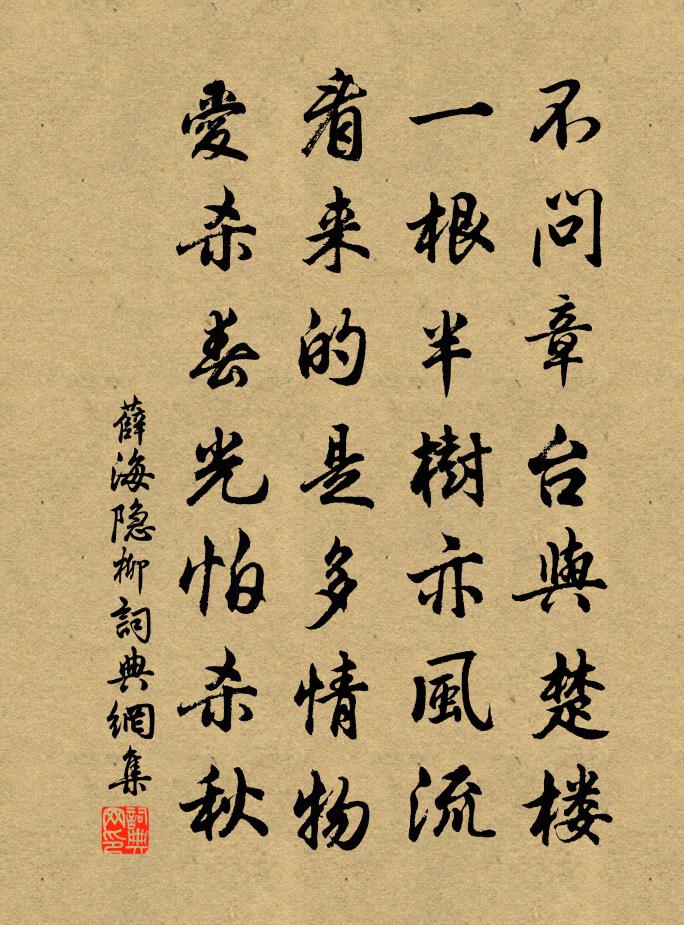 不問章台與楚楼
一根半樹亦風流
看来的是多情物
愛杀春光怕杀秋
薛海隐柳詞典網集
詞典網印